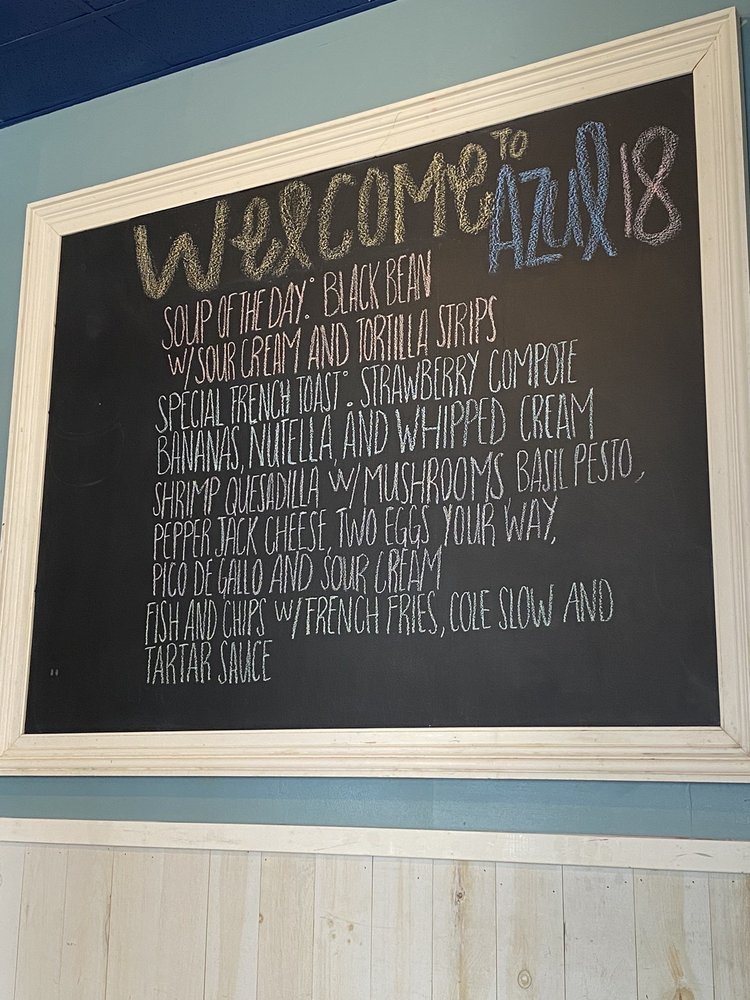 Welcome TO AZUL 18
SOUP OF THE DAY: BLACK BEAN
W/SOUR CREAM AND TORTILLA STRIPS
SPECIAL FRENCH TOAST: STRAWBERRY COMPOTE
BANANAS, NUTELLA, AND WHIPPED CREAM
SHRIMP QUESADILLA W/MUSHROOMS, BASIL PESTO,
PEPPER JACK CHEESE, TWO EGGS YOUR WAY,
PICO DE GALLO AND SOUR CREAM
FISH AND CHIPS W/FRENCH FRIES, COLE SLOW AND
TARTAR SAUCE